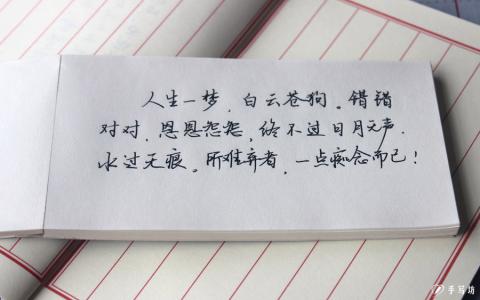 人生一梦，白云苍狗。错错
对对，恩恩怨怨，终不过日月无声.
水过无痕。所难弃者，一点痴念而已！
手写坊